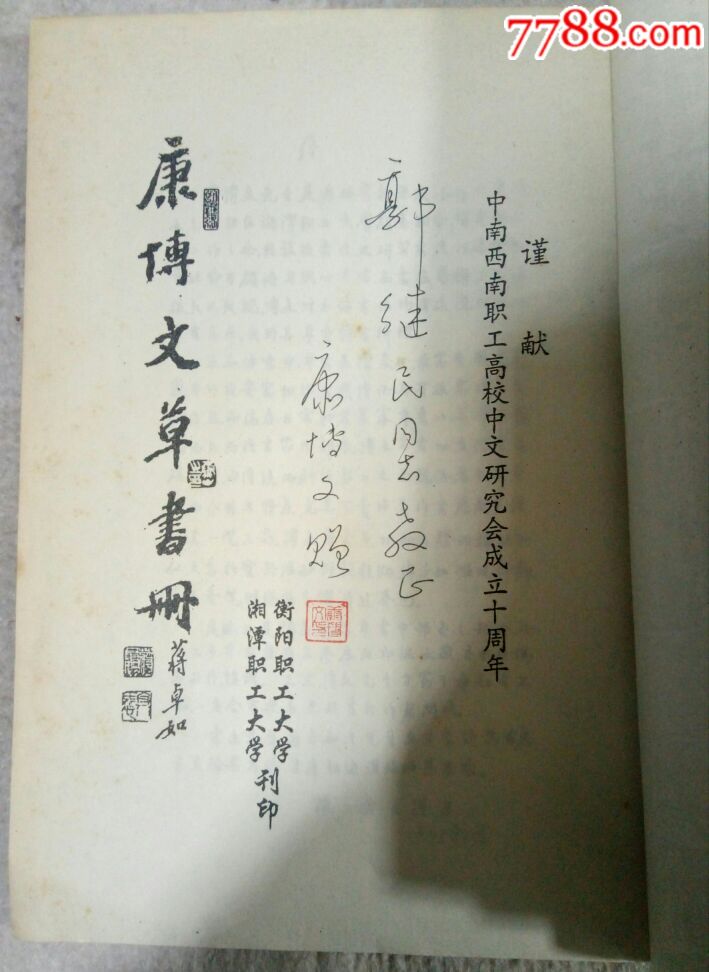 7788.com
谨献
中南西南职工高校中文研究会成立十周年
郭继民同志教正
康博文赠
衡阳职工大学
湘潭职工大学
刊印
康博文草书册
蒋卓如